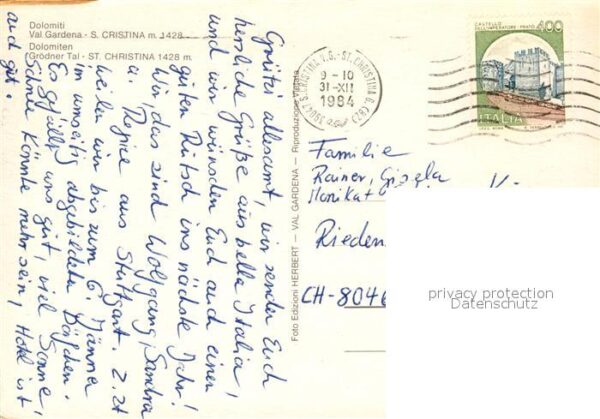 Dolomiti
Val Gardena - S. CRISTINA m. 1428
Dolomiten
Grödner Tal - ST. CHRISTINA 1428 m.
Grüezi allesamt, wir senden Euch
herzliche Grüße aus bella Italia,
und wir wünschen Euch auch einen
guten Rutsch ins nächste Jahr!
Wir, das sind Wolfgang, Sandra
u. Regine aus Stuttgart. Z.Zt
weilen wir bis zum 6. Jänner
im umseitig abgebildeten
Es gefällt uns gut, viel Sonne,
Schnee könnte mehr sein, Hotel ist
auch gut.
Foto Edizioni HERBERT - VAL GARDENA - Riproduzione vietata
39047 S. CRISTINA V.G. - ST. CHRISTINA G. (BZ)
9-10
31-XII
1984
CASTELLO
DELL'IMPERATORE - PRATO
400
ITALIA
Familie
Rainer, Gisela
Monika+
Rieden
CH-8046
privacy protection
Datenschutz